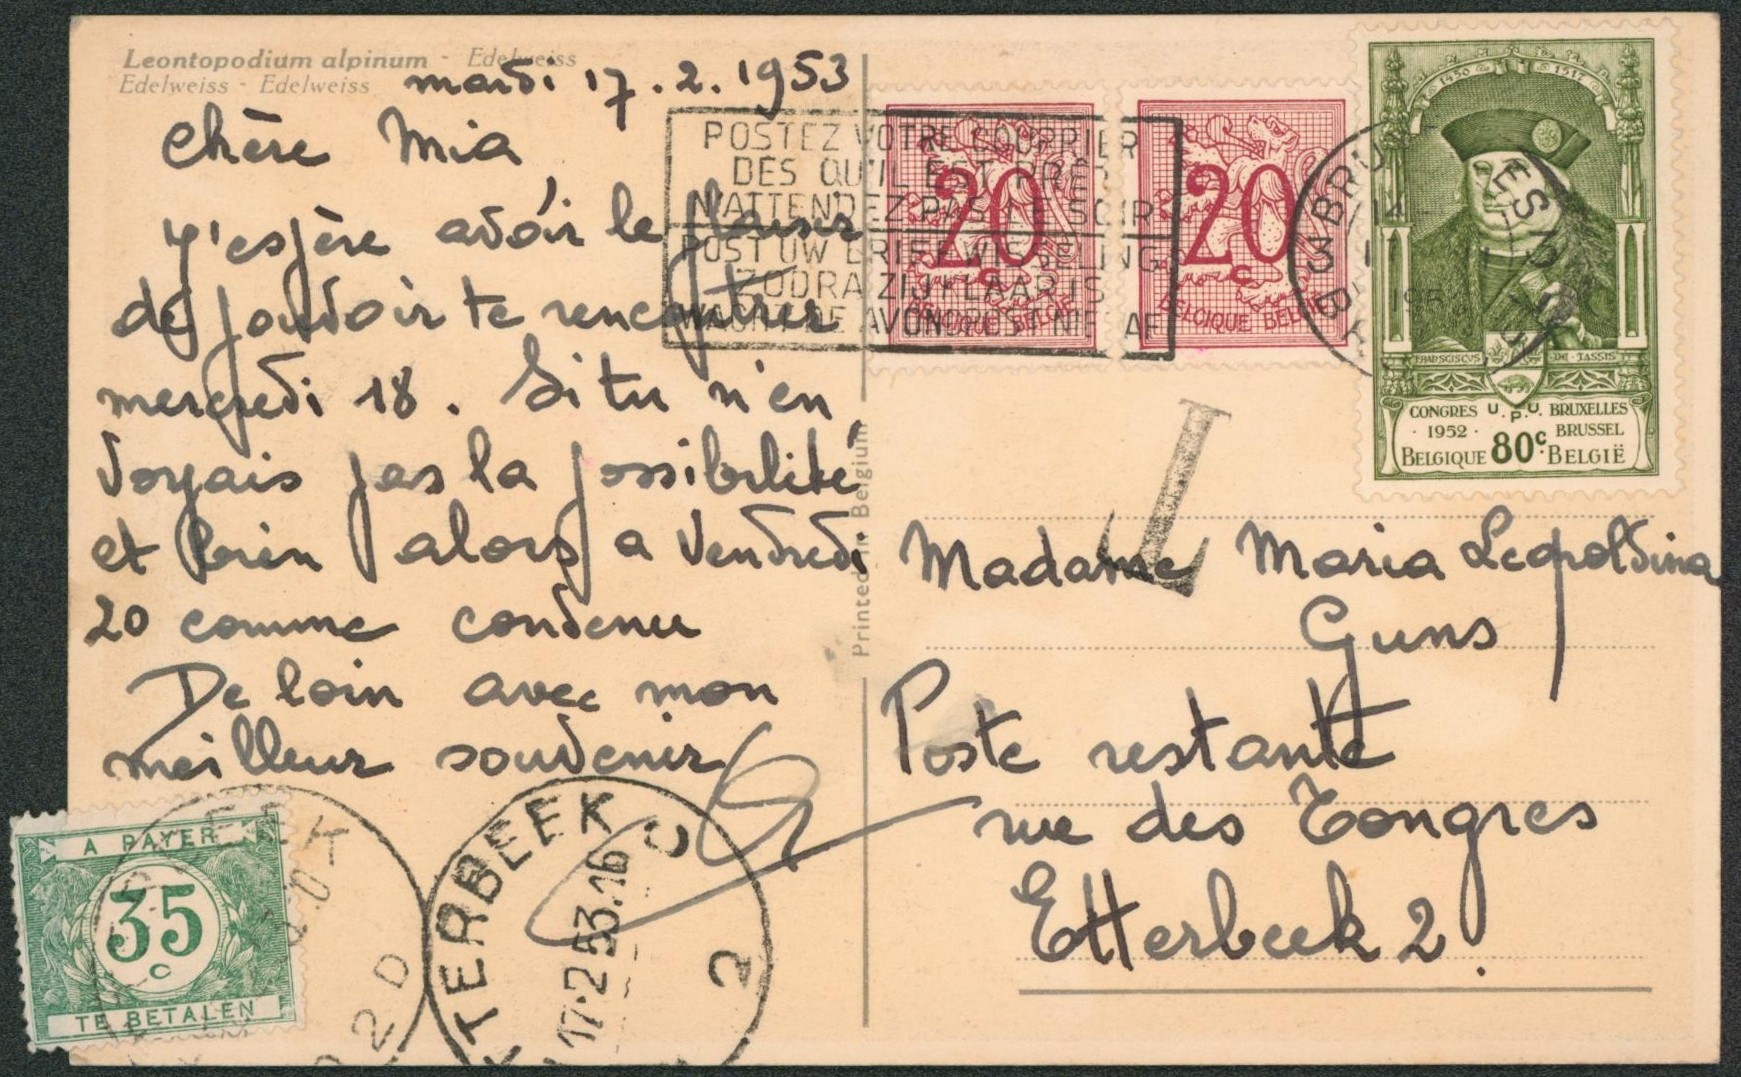 Leontopodium alpinum - Edelweiss
Edelweiss - Edelweiss
mardi 17.2.1953
Chère Mia
J'espère avoir le plaisir
de pouvoir te rencontrer
mercredi 18. Si tu n'en
voyais pas la possibilité
et bien alors a vendredi
20 comme convenu
De loin avec mon
meilleur souvenir
Printed in Belgium
POSTEZ VOTRE COURRIER
DES QU'IL EST PRÊT
N'ATTENDEZ PAS LE SOIR
POST UW BRIEFWISSELING
ZODRA ZIJ KLAAR IS
WACHT DE AVONDPOST NIET AF
20 c
BELGIQUE BELGIE
20 c
BELGIQUE BELGIE
1450 1517
FRANSGISCUS DE TASSIS
CONGRES U.P.U. BRUXELLES
1952 BRUSSEL
BELGIQUE 80c BELGIË
T
Madame Maria Leopoldina
Guns
Poste restante
rue des Tongres
Etterbeek 2.
A PAYER
35
c
TE BETALEN
2 D
ETTERBEEK
17-2 53.16
2